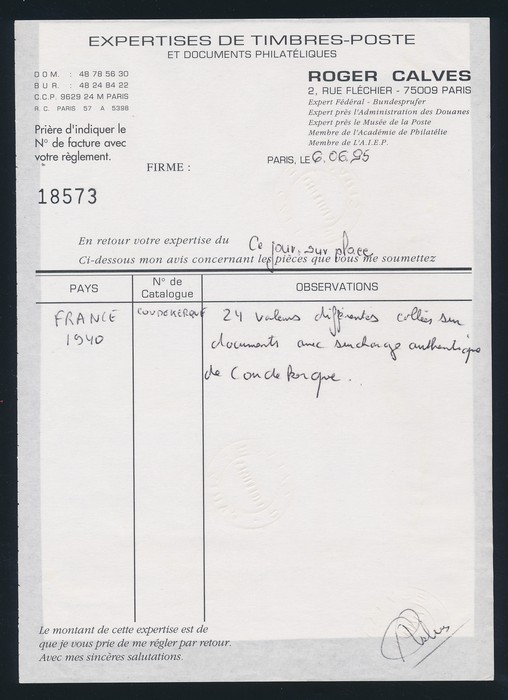 EXPERTISES DE TIMBRES-POSTE
ET DOCUMENTS PHILATÉLIQUES
DOM. : 48 78 56 30
BUR. : 48 24 84 22
C.C.P. 9629 24 M PARIS
R.C. PARIS 57 A 5398
ROGER CALVES
2, RUE FLÉCHIER - 75009 PARIS
Expert Fédéral - Bundesprufer
Expert près l'Administration des Douanes
Expert près le Musée de la Poste
Membre de l'Académie de Philatélie
Membre de L'A.I.E.P.
Prière d'indiquer le
N° de facture avec
votre règlement.
FIRME :
PARIS, LE 6.06.95
18573
En retour votre expertise du Ce jour, sur place
Ci-dessous mon avis concernant les pièces que vous me soumettez
PAYS
N° de
Catalogue
OBSERVATIONS
FRANCE
1940
COUDEKERQUE
24 valeurs différentes collées sur
documents avec surcharge authentique
de Coudekerque.
Le montant de cette expertise est de
que je vous prie de me régler par retour.
Avec mes sincères salutations.